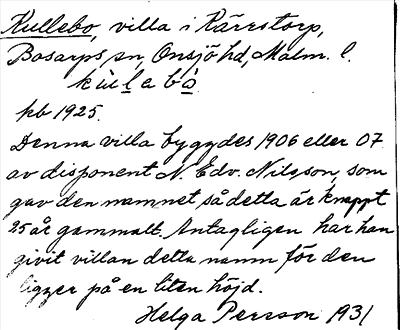 Kullebo, villa i Kärrstorp,
Bosarps sn, Onsjö hd, Malm. l.
kùllabò
pb 1925.
Denna villa byggdes 1906 eller 07
av disponent N. Edv. Nilsson, som
gav den namnet så detta är knappt
25 år gammalt. Antagligen har han
givit villan detta namn för den
ligger på en liten höjd.
Helga Persson 1931